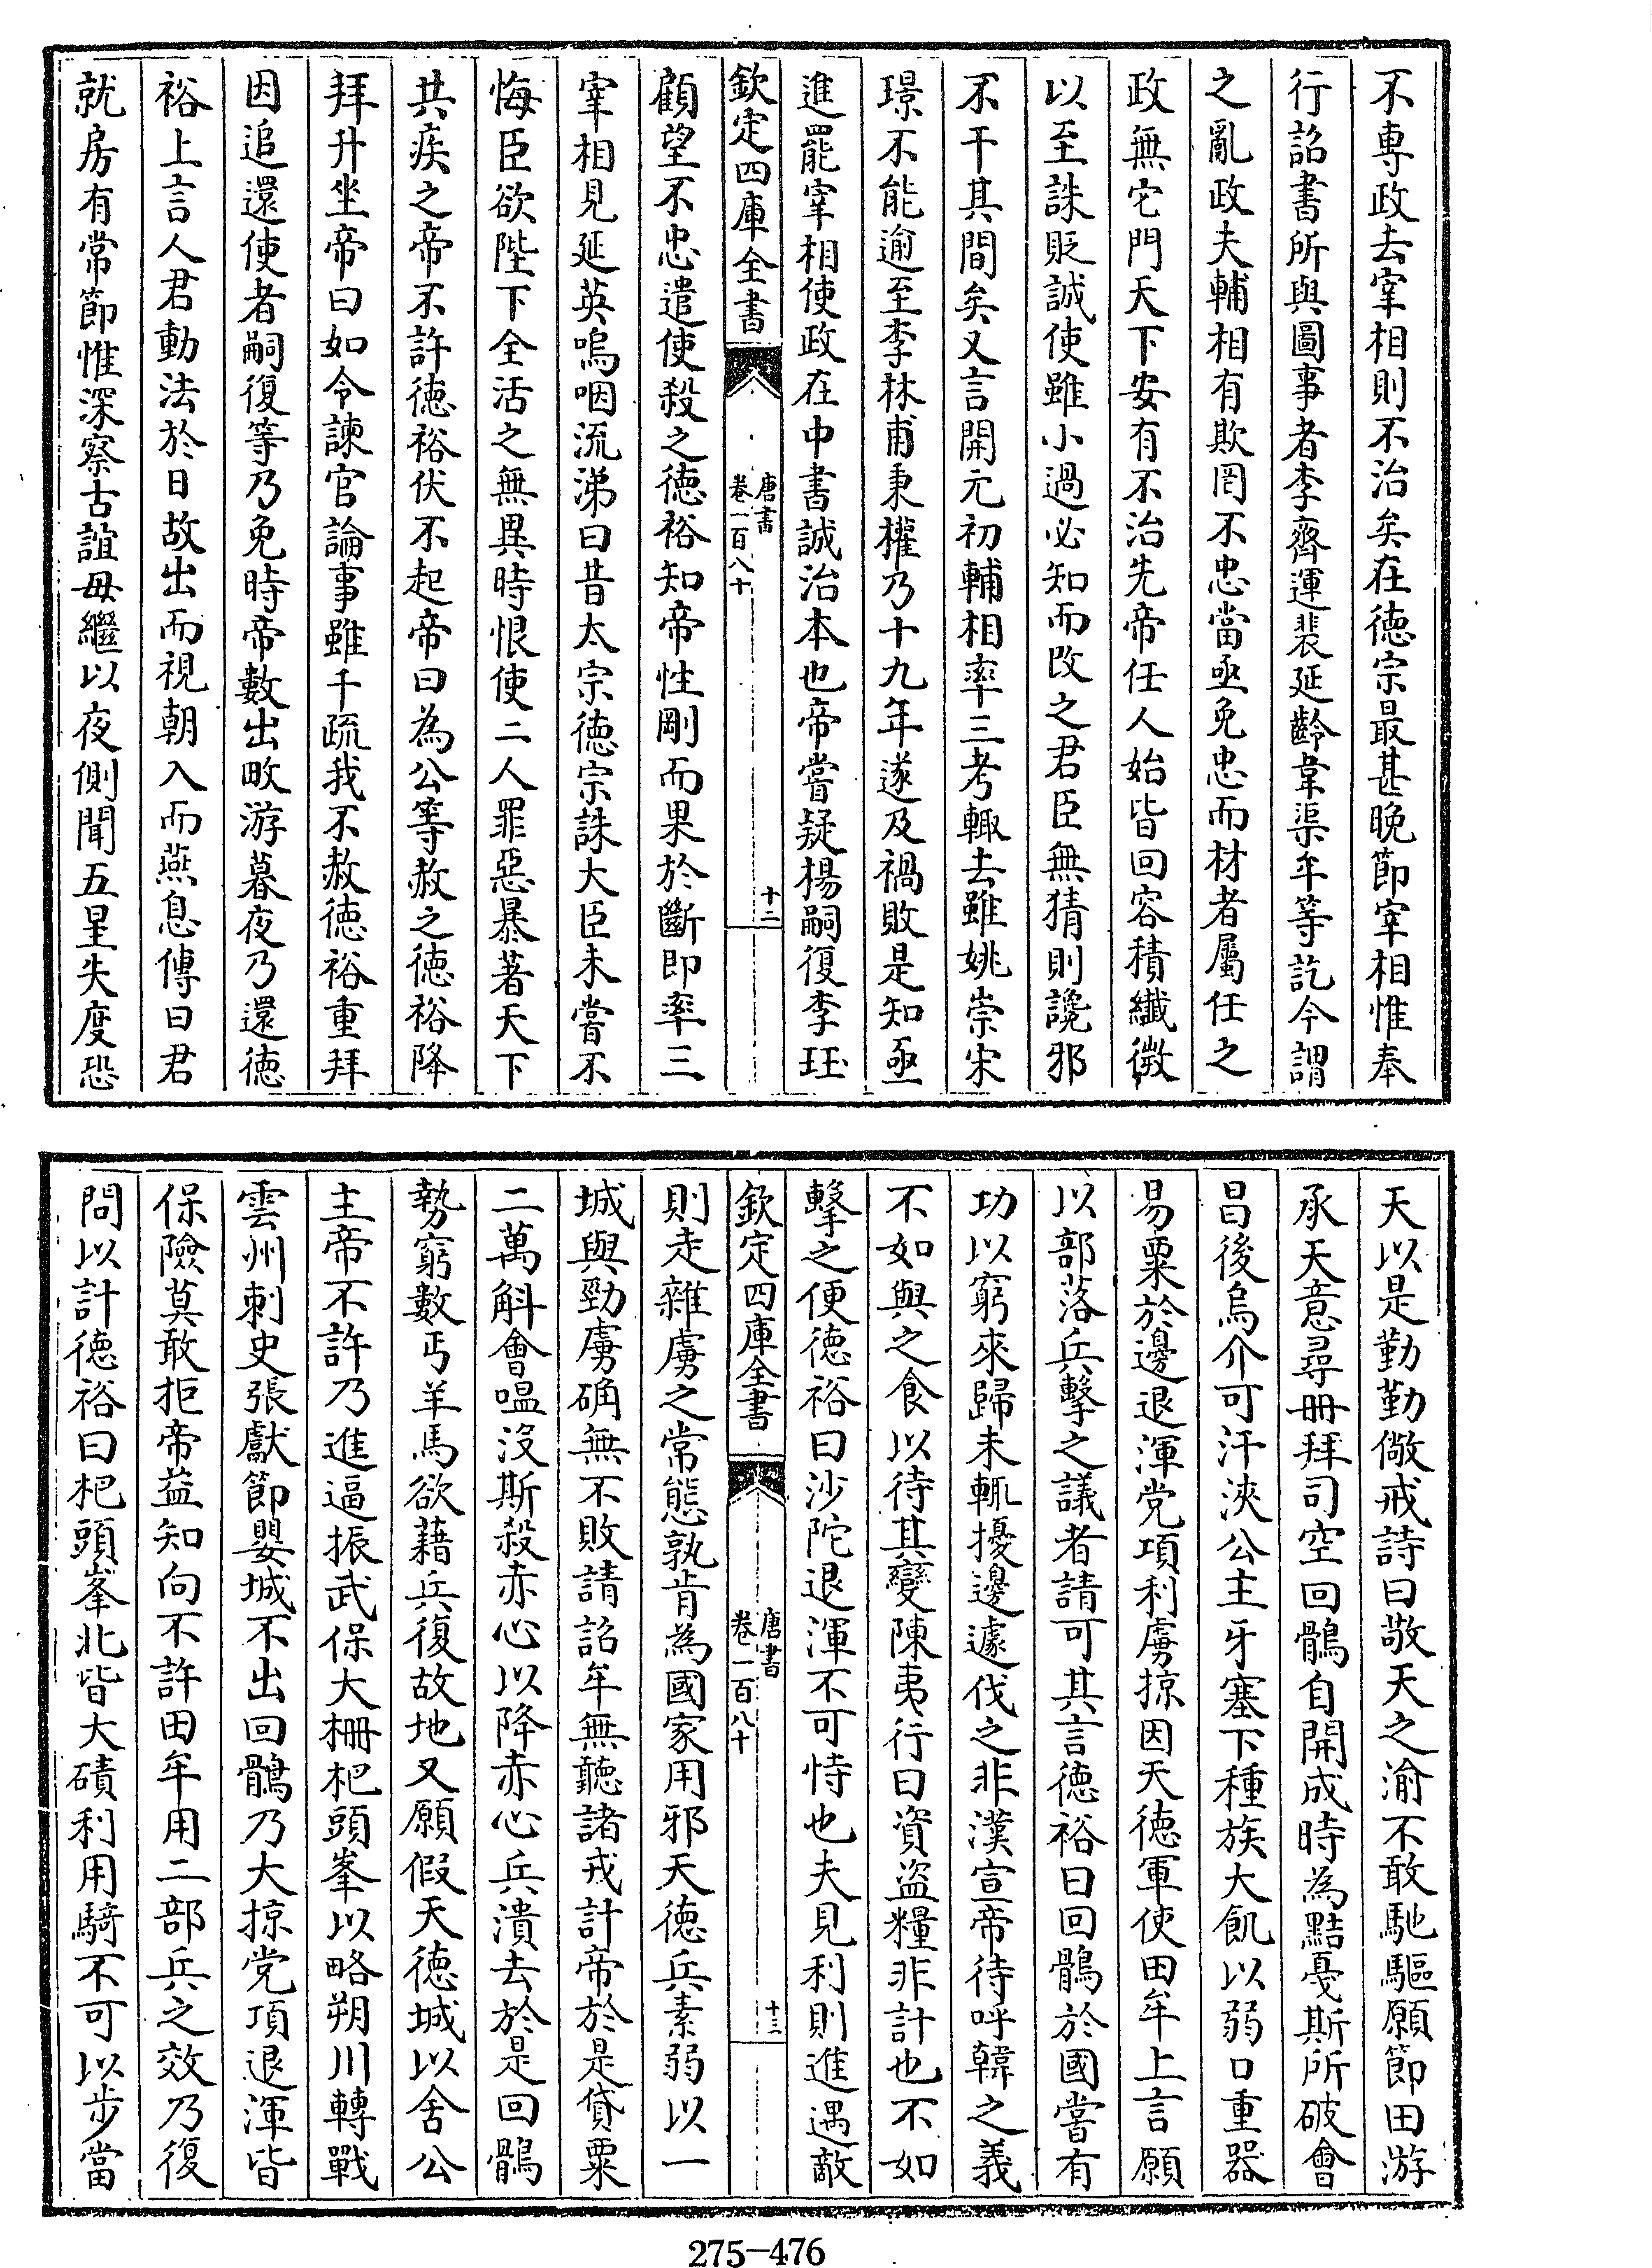 不專政去宰相則不治矣在徳宗最甚晚節宰相惟奉
行詔書所與圖事者李齊運裴延齡韋渠牟等訖今謂
之亂政夫輔相有欺罔不忠當亟免忠而材者屬任之
政無它門天下安有不治先帝任人始皆回容積纖微
以至誅貶誠使雖小過必知而改之君臣無猜則讒邪
不干其間矣又言開元初輔相率三考輙去雖姚崇宋
璟不能逾至李林甫秉權乃十九年遂及禍敗是知亟
進罷宰相使政在中書誠治本也帝嘗疑楊嗣復李珏
欽定四庫全書
唐書
卷一百八十
十二
顧望不忠遣使殺之徳裕知帝性剛而果於斷即率三
宰相見延英嗚咽流涕曰昔太宗徳宗誅大臣未嘗不
悔臣欲陛下全活之無異時恨使二人罪惡暴著天下
共疾之帝不許徳裕伏不起帝曰為公等赦之徳裕降
拜升坐帝曰如令諫官論事雖千疏我不赦徳裕重拜
因追還使者嗣復等乃免時帝數出畋游暮夜乃還徳
裕上言人君動法於日故出而視朝入而燕息傳曰君
就房有常節惟深察古誼毋繼以夜側聞五星失度恐
天以是勤勤儆戒詩曰敬天之渝不敢馳驅願節田游
承天意尋冊拜司空回鶻自開成時為黠戛斯所破會
昌後烏介可汗浹公主牙塞下種族大飢以弱口重器
易粟於邊退渾党項利虜掠因天徳軍使田牟上言願
以部落兵擊之議者請可其言徳裕曰回鶻於國嘗有
功以窮來歸未輒擾邊遽伐之非漢宣帝待呼韓之義
不如與之食以待其變陳夷行曰資盜糧非計也不如
擊之便徳裕曰沙陀退渾不可恃也夫見利則進遇敵
欽定四庫全書
唐書
卷一百八十
十三
則走雜虜之常態孰肯為國家用邪天徳兵素弱以一
城與勁虜确無不敗請詔牟無聽諸戎計帝於是貸粟
二萬斛會嗢沒斯殺赤心以降赤心兵潰去於是回鶻
勢窮數丐羊馬欲藉兵復故地又願假天徳城以舍公
主帝不許乃進逼振武保大柵杷頭峯以略朔川轉戰
雲州刺史張獻節嬰城不出回鶻乃大掠党項退渾皆
保險莫敢拒帝益知向不許田牟用二部兵之效乃復
問以計徳裕曰杷頭峯北皆大磧利用騎不可以步當
275-476